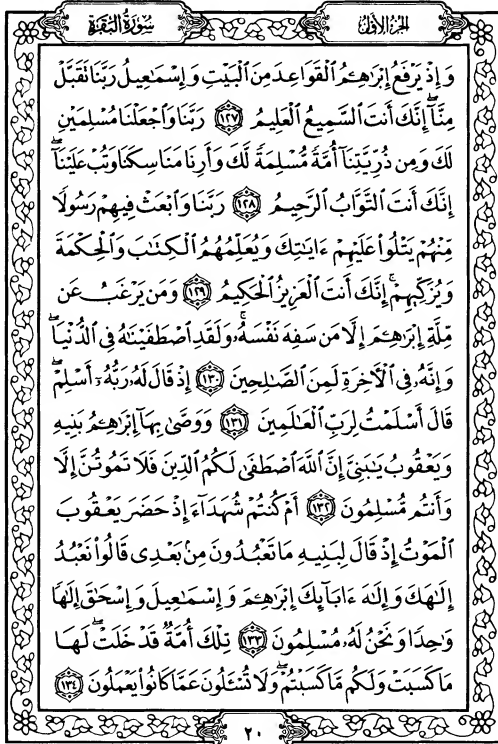 سُورَةُ البَقَرَةِ
الجزء الأول
وَإِذْ يَرْفَعُ إِبْرَٰهِـۧمُ ٱلْقَوَاعِدَ مِنَ ٱلْبَيْتِ وَإِسْمَٰعِيلُ رَبَّنَا تَقَبَّلْ
مِنَّآ ۖ إِنَّكَ أَنتَ ٱلسَّمِيعُ ٱلْعَلِيمُ ١٢٧ رَبَّنَا وَٱجْعَلْنَا مُسْلِمَيْنِ
لَكَ وَمِن ذُرِّيَّتِنَآ أُمَّةً مُّسْلِمَةً لَّكَ وَأَرِنَا مَنَاسِكَنَا وَتُبْ عَلَيْنَآ ۖ
إِنَّكَ أَنتَ ٱلتَّوَّابُ ٱلرَّحِيمُ ١٢٨ رَبَّنَا وَٱبْعَثْ فِيهِمْ رَسُولًا
مِّنْهُمْ يَتْلُوا۟ عَلَيْهِمْ ءَايَٰتِكَ وَيُعَلِّمُهُمُ ٱلْكِتَٰبَ وَٱلْحِكْمَةَ
وَيُزَكِّيهِمْ ۚ إِنَّكَ أَنتَ ٱلْعَزِيزُ ٱلْحَكِيمُ ١٢٩ وَمَن يَرْغَبُ عَن
مِّلَّةِ إِبْرَٰهِـۧمَ إِلَّا مَن سَفِهَ نَفْسَهُۥ ۚ وَلَقَدِ ٱصْطَفَيْنَٰهُ فِى ٱلدُّنْيَا ۖ
وَإِنَّهُۥ فِى ٱلْـَٔاخِرَةِ لَمِنَ ٱلصَّٰلِحِينَ ١٣٠ إِذْ قَالَ لَهُۥ رَبُّهُۥٓ أَسْلِمْ ۖ
قَالَ أَسْلَمْتُ لِرَبِّ ٱلْعَٰلَمِينَ ١٣١ وَوَصَّىٰ بِهَآ إِبْرَٰهِـۧمُ بَنِيهِ
وَيَعْقُوبُ يَٰبَنِىَّ إِنَّ ٱللَّهَ ٱصْطَفَىٰ لَكُمُ ٱلدِّينَ فَلَا تَمُوتُنَّ إِلَّا
وَأَنتُم مُّسْلِمُونَ ١٣٢ أَمْ كُنتُمْ شُهَدَآءَ إِذْ حَضَرَ يَعْقُوبَ
ٱلْمَوْتُ إِذْ قَالَ لِبَنِيهِ مَا تَعْبُدُونَ مِنۢ بَعْدِى قَالُوا۟ نَعْبُدُ
إِلَٰهَكَ وَإِلَٰهَ ءَابَآئِكَ إِبْرَٰهِـۧمَ وَإِسْمَٰعِيلَ وَإِسْحَٰقَ إِلَٰهًا
وَٰحِدًا وَنَحْنُ لَهُۥ مُسْلِمُونَ ١٣٣ تِلْكَ أُمَّةٌ قَدْ خَلَتْ ۖ لَهَا
مَا كَسَبَتْ وَلَكُم مَّا كَسَبْتُمْ ۖ وَلَا تُسْـَٔلُونَ عَمَّا كَانُوا۟ يَعْمَلُونَ ١٣٤
٢٠